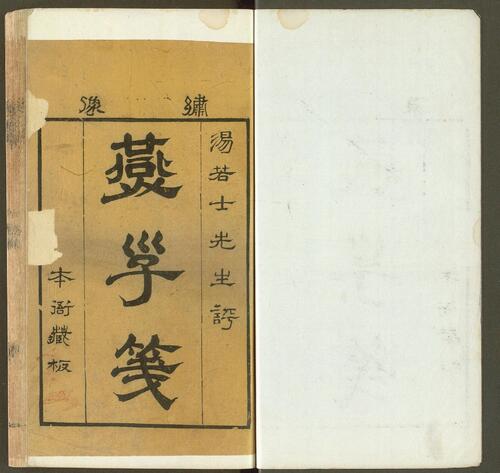 繡像
湯若士先生評
燕子箋
本衙藏板